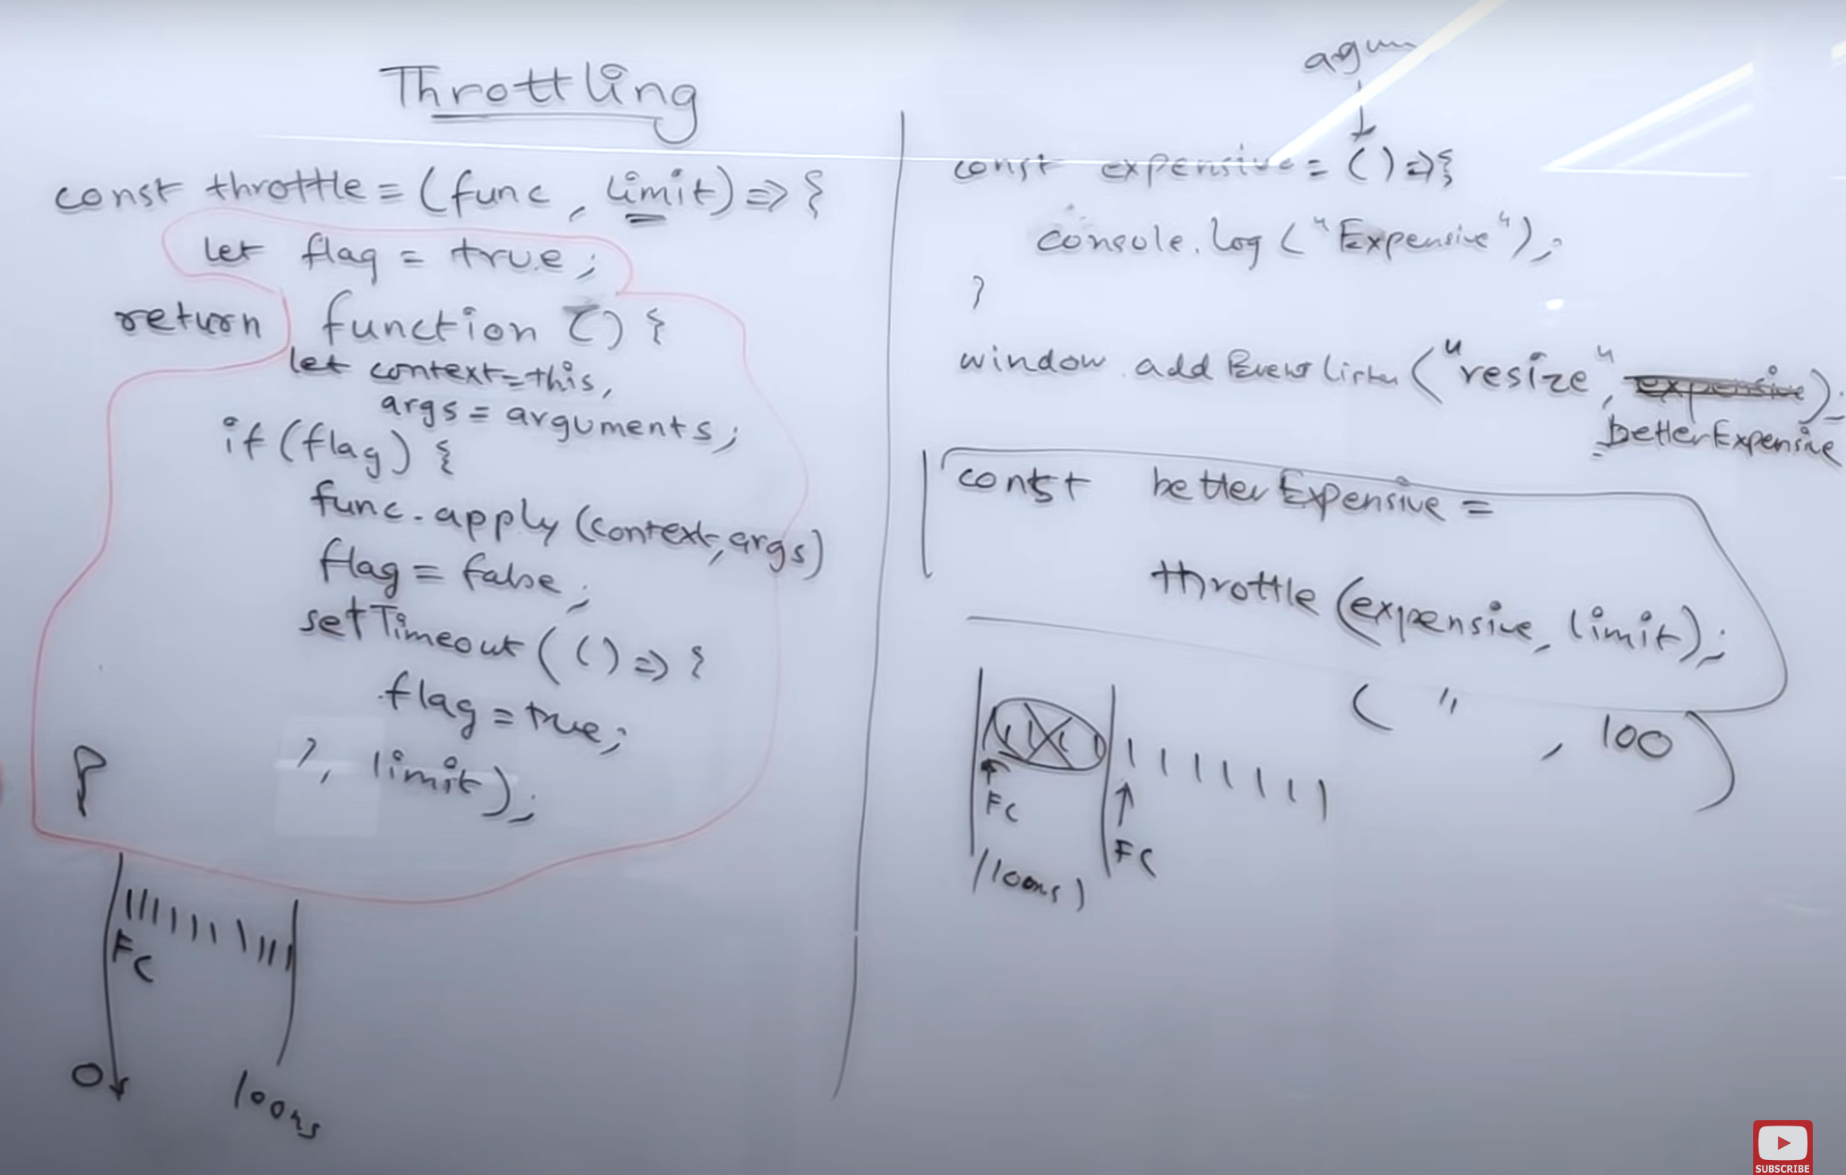 Throttling
const throttle = (func, limit) => {
let flag = true;
return function () {
let context = this,
args = arguments;
if (flag) {
func.apply (context, args)
flag = false;
setTimeout ( () => {
flag = true;
}, limit);
}
FC
0
100ms
const expensive = () => {
console.log ("Expensive");
}
window.addEventListner ("resize", expensive);
betterExpensive
const betterExpensive =
throttle (expensive, limit);
( " , 100 )
FC
FC
(100ms)
SUBSCRIBE